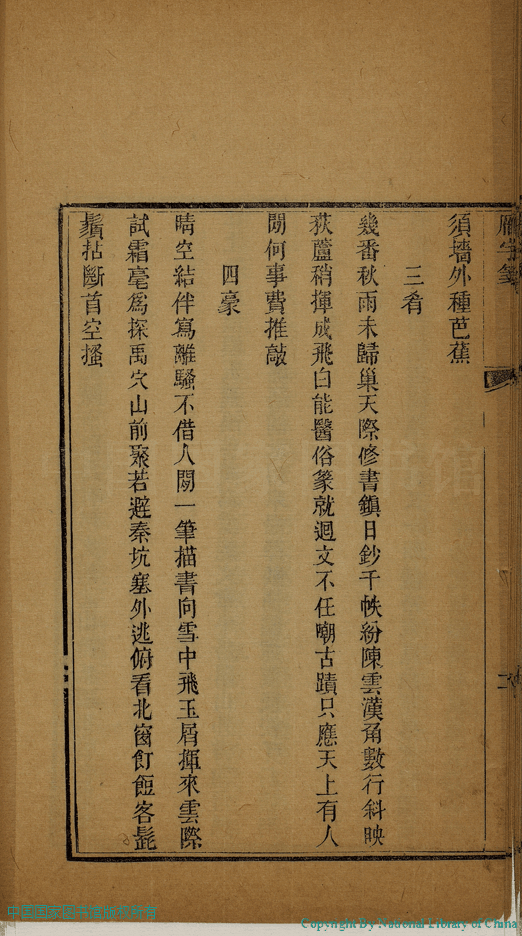 雁字箋
須墻外種芭蕉
三肴
幾番秋雨未歸巢天際修書鎮日鈔千帙紛陳雲漢角數行斜映
荻蘆稍揮成飛白能醫俗篆就迴文不任嘲古蹟只應天上有人
閒何事費推敲
四豪
晴空結伴寫離騷不借人閒一筆描書向雪中飛玉屑揮來雲際
試霜毫爲探禹穴山前聚若避秦坑塞外逃俯看北窗飣餖客髭
鬚拈斷首空搔
二
Copyright By National Library of China